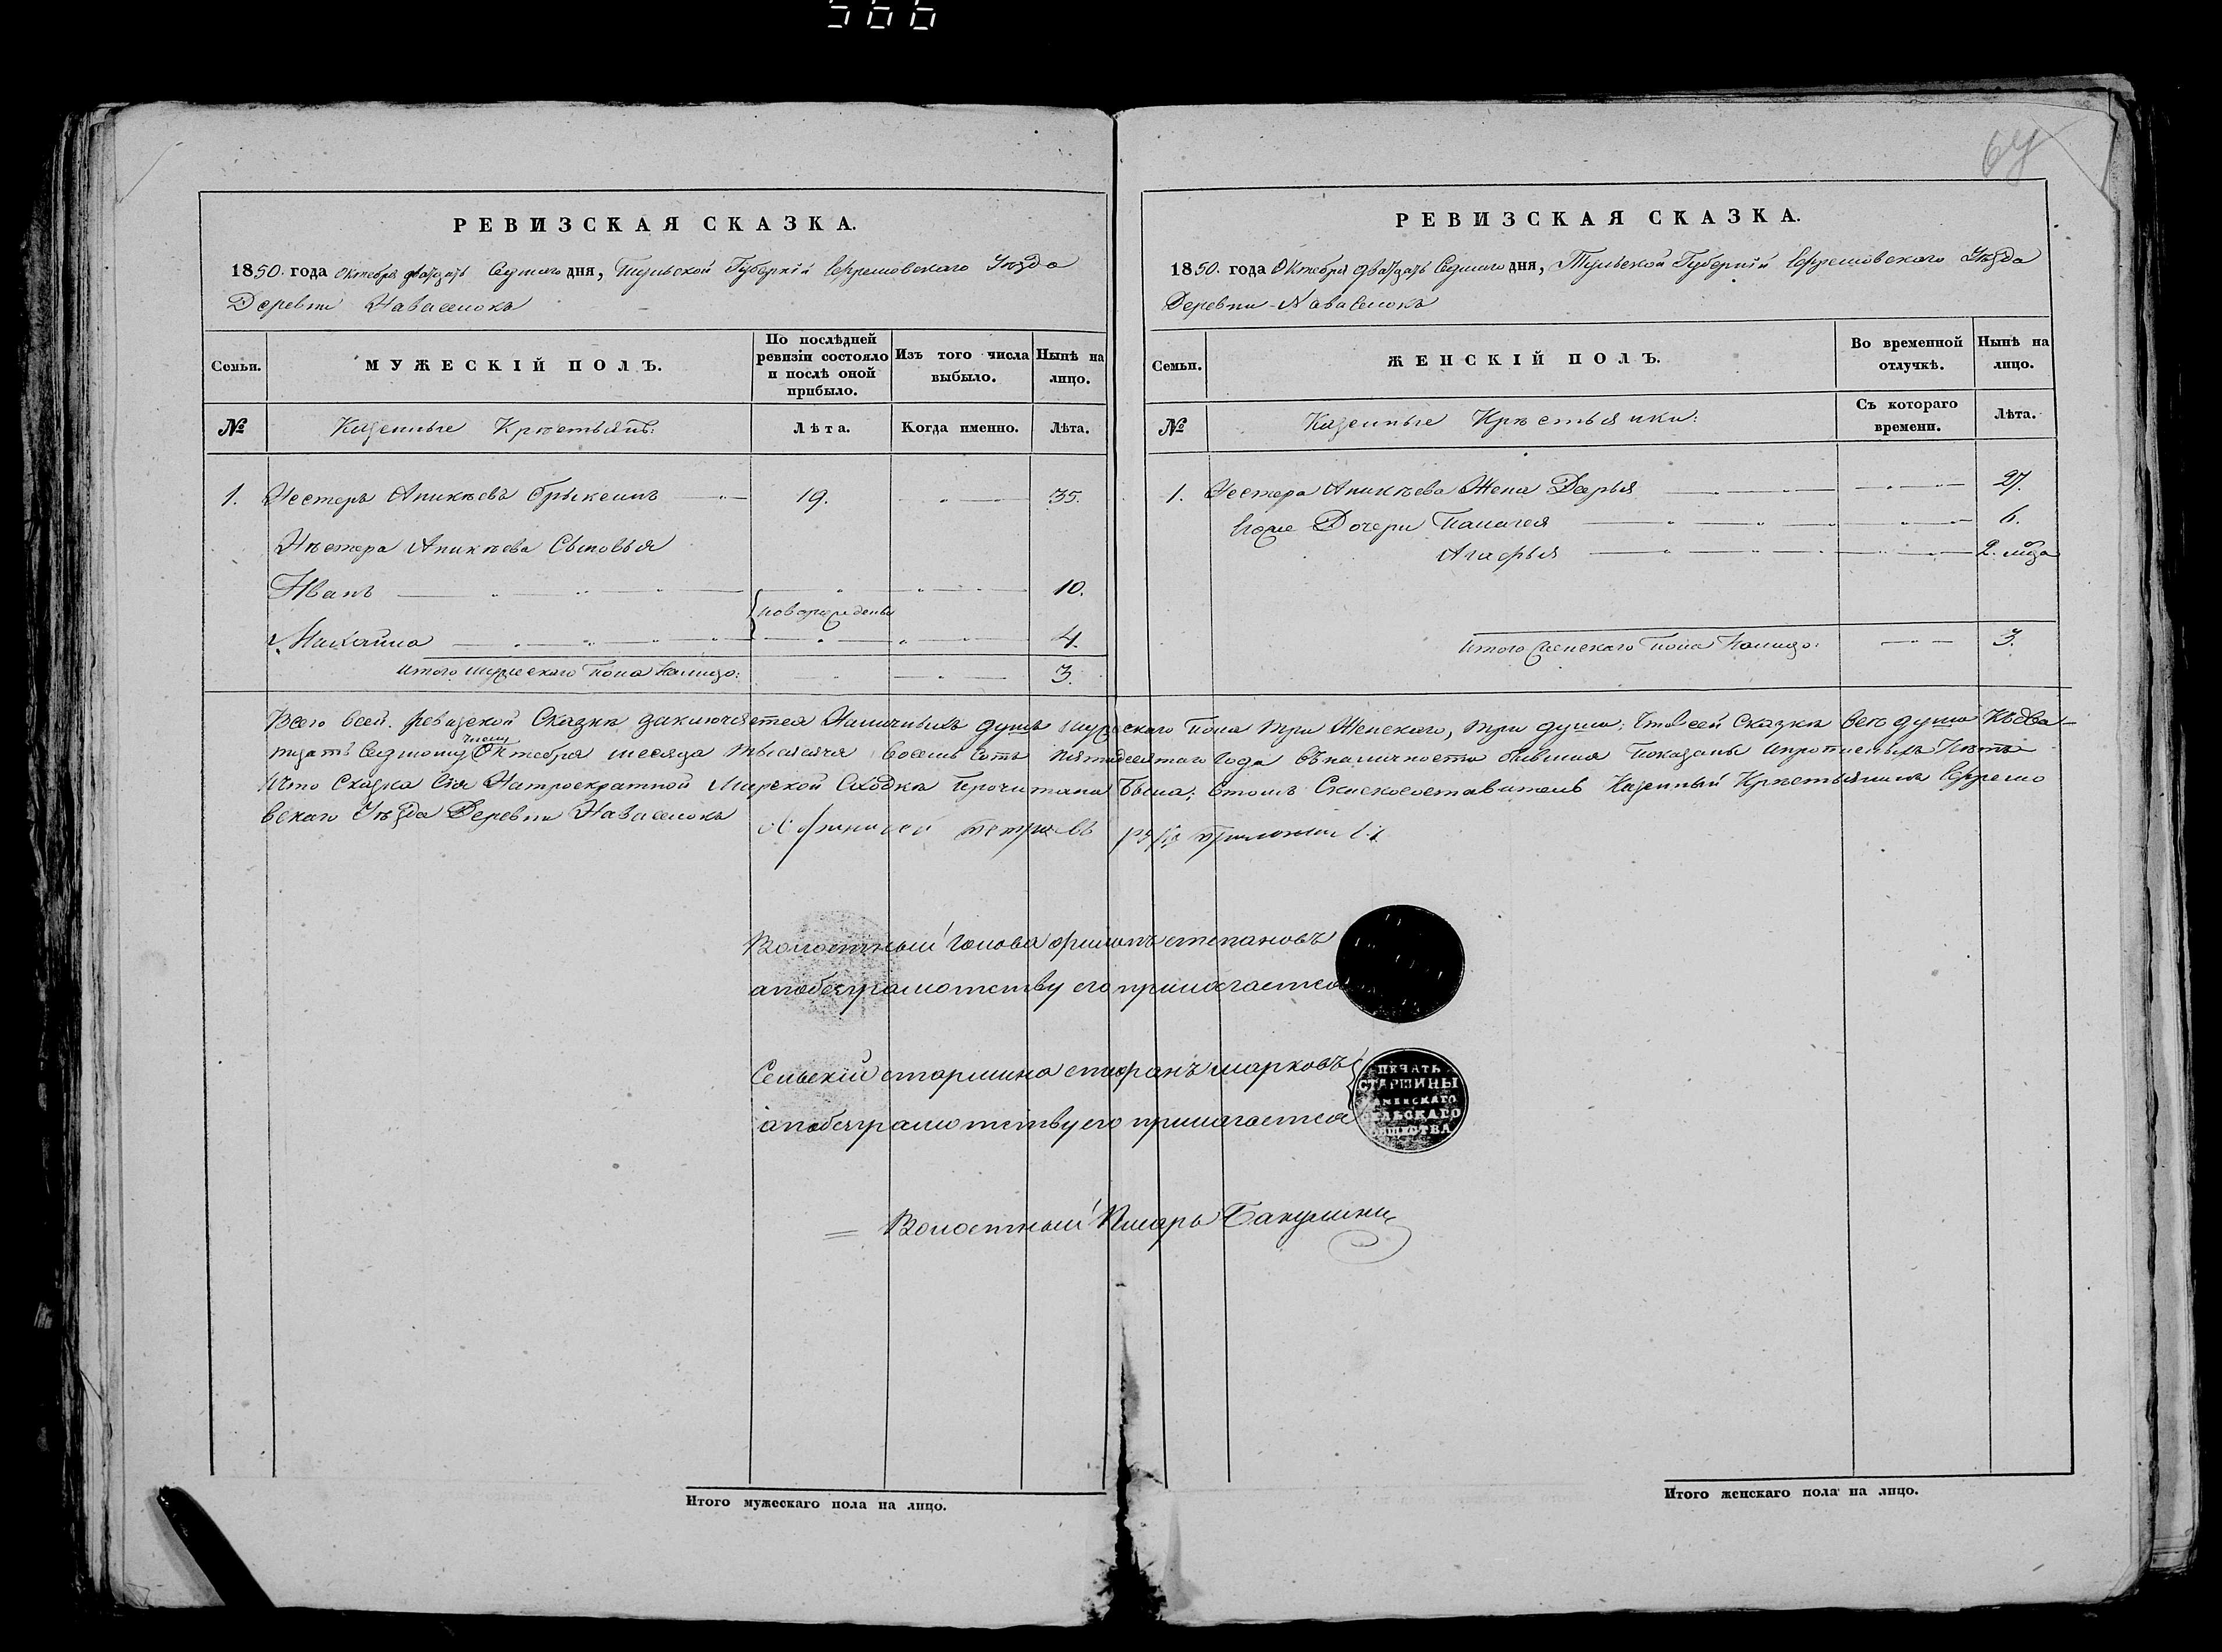 566
64
РЕВИЗСКАЯ СКАЗКА.
1850. года Октебря дватцать Седмаго дня, Тульской Губернiи Ефремовскаго Уѣзда
Деревни Наваселокъ
Семьи.
МУЖЕСКІЙ ПОЛЪ.
По послѣдней ревизіи состояло и послѣ оной прибыло.
Изъ того числа выбыло.
Нынѣ на лицо.
№
Казенные Крѣстьянѣ:
Лѣта.
Когда именно.
Лѣта.
1. Нестеръ Аникѣевъ 19. 35.
Нѣстера Аникѣева Сыновья
Иванъ 10.
новорожденны
Михайла 4.
Итого мужескаго Пола Налицо: 3.
РЕВИЗСКАЯ СКАЗКА.
1850. года Октебря дватцать Седмаго дня, Тульской Губернiи Ефремовскаго Уѣзда
Деревни Наваселокъ
Семьи.
ЖЕНСКІЙ ПОЛЪ.
Во временной отлучкѣ.
Нынѣ на лицо.
№
Казенные Крѣстьянки:
Съ котораго времени.
Лѣта.
1. Нестера Аникѣева Жена Дарья 27.
Егоже Дочери Палагея 6.
Агафья 2. мѣся
Итого Женскаго Пола Налицо: 3.
Всего всей ревизской Сказкѣ заключяется Наличныхъ душъ мужескаго Пола три Женскаго, три души. Чтовсей Сказкѣ все души Къдва
тцать Седмому числу Октебря месяца тысяча восемь Сотъ Пятидесятаго Года вналичности бывшия Показаны ипрописныхъ Нѣтъ
Ичто Сказка Сiя Натроекратной Мирской Сходкѣ Прочитана Была; втомъ Скаскосоставитель Казенный Крѣстьянинъ Ефремо
вскаго Уѣзда Деревни Наваселокъ Петровъ руку приложилъ
Волостный Голова степановъ
апобезграмотству его прилагается
Сельскiй старшина марковъ
апобезграмотству его прилагается
ПЕЧАТЬ
СТАРШИНЫ
Волостный Писарь Бакулинъ
Итого мужескаго пола на лицо.
Итого женскаго пола на лицо.